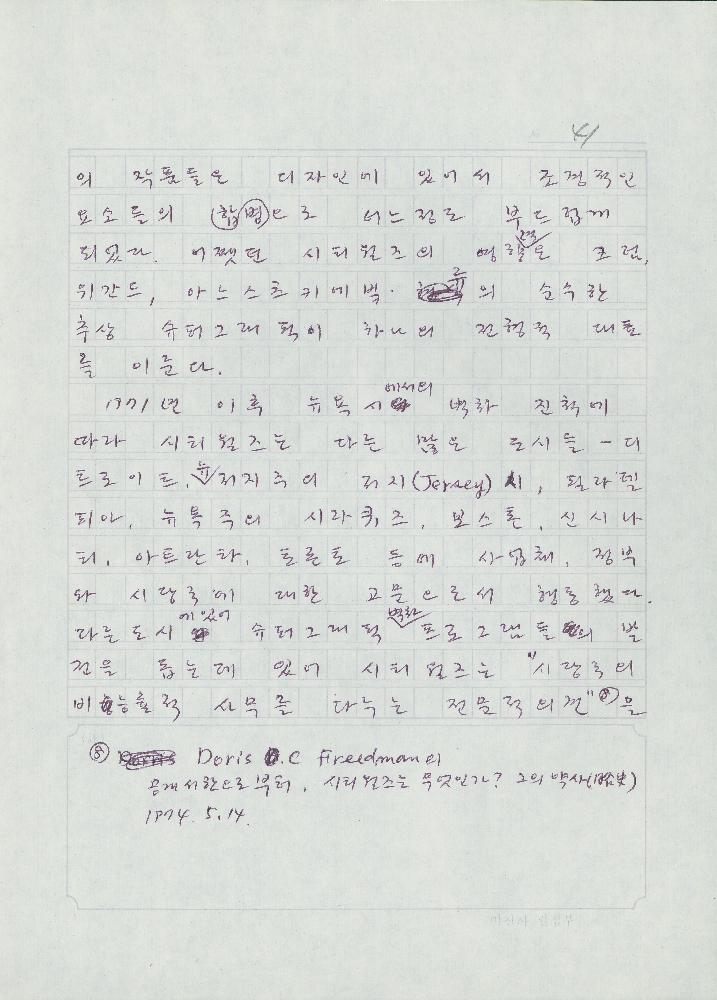 41
의 작품들은 디자인에 있어서 조경적인
요소들의 합병으로 어느정도 부드럽게
되었다. 어쨋던 시티월즈의 영향은 크럼,
위간드, 아누스츠키에빅. 의 순수한
추상 슈퍼그래픽이 하나의 전형적 대표
를 이룬다.
1971년 이후 뉴욕시에서의 벽화 진척에
따라 시티월즈는 다른 많은 도시들 - 디
트로이트, 뉴저지주의 저지(Jersey)시, 필라델
피아, 뉴욕주의 시라큐즈, 보스톤, 신시나
티, 아트란타, 토론토 등에 사업체, 정부
와 시당국에 대한 고문으로서 행동했다.
다른 도시에 있어 슈퍼그래픽 벽화 프로그램들의 발
전을 돕는데 있어 시티월즈는 "시당국의
비능률적 사무를 다루는 전문적의견"⑧을
⑧ Doris C. Freedman의
공개서한으로부터, 시티월즈는 무엇인가? 그의 약사(略史)
1974. 5. 14.